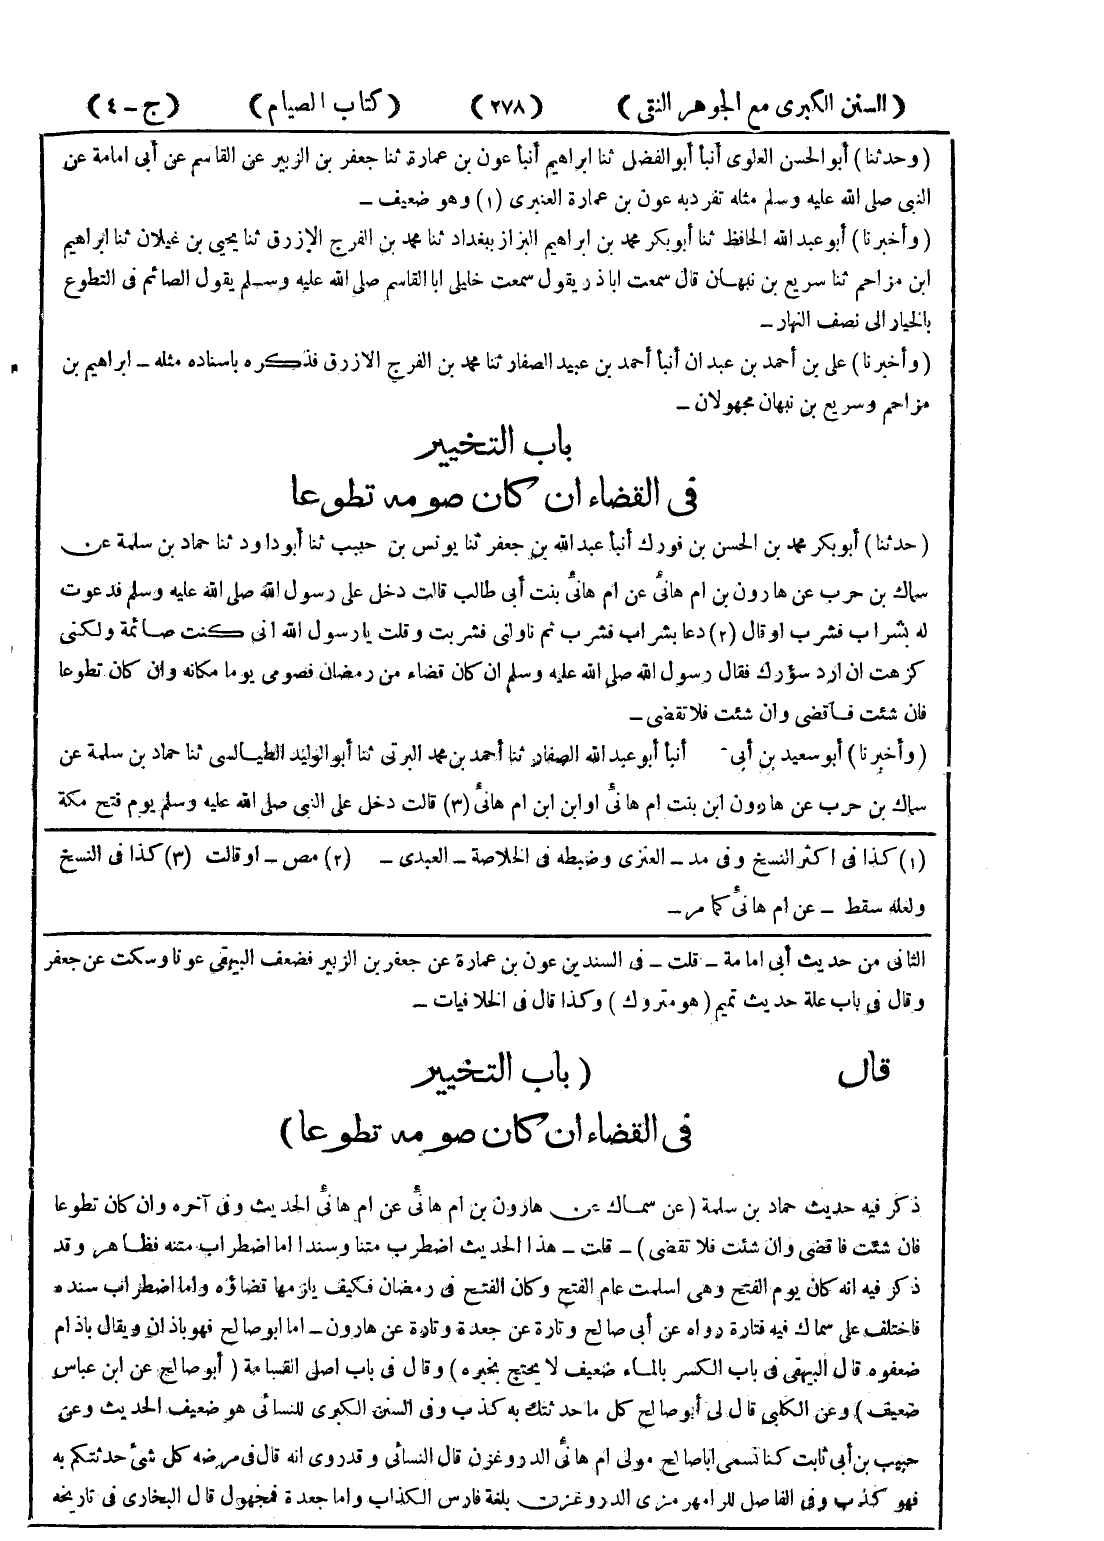 (السنن الكبرى مع الجوهر النقى) (٢٧٨) (كتاب الصيام) (ج - ٤)
(وحدثنا) أبو الحسن العلوى أنبأ أبو الفضل ثنا ابراهيم أنبأ عون بن عمارة ثنا جعفر بن الزبير عن القاسم عن أبى امامة عن
النبى صلى الله عليه وسلم مثله تفرد به عون بن عمارة العنبرى (١) وهو ضعيف -
(وأخبرنا) أبو عبد الله الحافظ ثنا أبو بكر محمد بن ابراهيم البزاز ببغداد ثنا محمد بن الفرج الازرق ثنا يحيى بن غيلان ثنا ابراهيم
ابن مزاحم ثنا سريع بن نبهان قال سمعت اباذر يقول سمعت خليلى ابا القاسم صلى الله عليه وسلم يقول الصائم فى التطوع
بالخيار الى نصف النهار -
(وأخبرنا) على بن أحمد بن عبدان أنبأ أحمد بن عبيد الصفار ثنا محمد بن الفرج الازرق فذكره باسناده مثله - ابراهيم بن
مزاحم وسريع بن نبهان مجهولان -
باب التخيير
فى القضاء ان كان صومه تطوعا
(حدثنا) أبو بكر محمد بن الحسن بن فورك أنبأ عبد الله بن جعفر ثنا يونس بن حبيب ثنا أبو داود ثنا حماد بن سلمة عن
سماك بن حرب عن هارون بن ام هانئ عن ام هانئ بنت أبى طالب قالت دخل على رسول الله صلى الله عليه وسلم فدعوت
له بشراب فشرب او قال (٢) دعا بشراب فشرب ثم ناولنى فشربت وقلت يا رسول الله انى كنت صائمة ولكنى
كرهت ان ارد سؤرك فقال رسول الله صلى الله عليه وسلم ان كان قضاء من رمضان فصومى يوما مكانه وان كان تطوعا
فان شئت فاقضى وان شئت فلا تقضى -
(وأخبرنا) أبو سعيد بن أبى أنبأ أبو عبد الله الصفار ثنا أحمد بن محمد البرتى ثنا أبو الوليد الطيالسى ثنا حماد بن سلمة عن
سماك بن حرب عن هارون ابن بنت ام هانئ او ابن ابن ام هانئ (٣) قالت دخل على النبى صلى الله عليه وسلم يوم فتح مكة
(١) كذا فى اكثر النسخ وفى مد - العنزى وضبطه فى الخلاصة - العبدى - (٢) مص - او قالت (٣) كذا فى النسخ
ولعله سقط - عن ام هانئ كما مر -
الثانى من حديث أبى امامة - قلت - فى السند ين عون بن عمارة عن جعفر بن الزبير فضعف البيهقى عونا وسكت عن جعفر
وقال فى باب علة حديث تميم (هو متروك) وكذا قال فى الخلافيات -
قال (باب التخيير
فى القضاء ان كان صومه تطوعا)
ذكر فيه حديث حماد بن سلمة (عن سماك عن هارون بن ام هانئ عن ام هانئ الحديث وفى آخره وان كان تطوعا
فان شئت فاقضى وان شئت فلا تقضى) - قلت - هذا الحديث اضطرب متنا وسندا اما اضطراب متنه فظاهر وقد
ذكر فيه انه كان يوم الفتح وهى اسلمت عام الفتح وكان الفتح فى رمضان فكيف يلزمها قضاؤه واما اضطراب سنده
فاختلف على سماك فيه فتارة رواه عن أبى صالح وتارة عن جعدة وتارة عن هارون - اما ابو صالح فهو باذان ويقال باذام
ضعفوه قال البيهقى فى باب الكسر بالماء ضعيف لا يحتج بخبره) وقال فى باب اصل القسامة (أبو صالح عن ابن عباس
ضعيف) وعن الكلبى قال لى أبو صالح كل ما حدثتك به كذب وفى السنن الكبرى للنسائى هو ضعيف الحديث وعن
حبيب بن أبى ثابت كنا نسمى اباصالح مولى ام هانئ الدروغزن قال النسائى وقد روى انه قال فى مرضه كل شئ حدثتكم به
فهو كذب وفى الفاصل للرامهرمزى الدروغزن بلغة فارس الكذاب واما جعدة فمجهول قال البخارى فى تاريخه